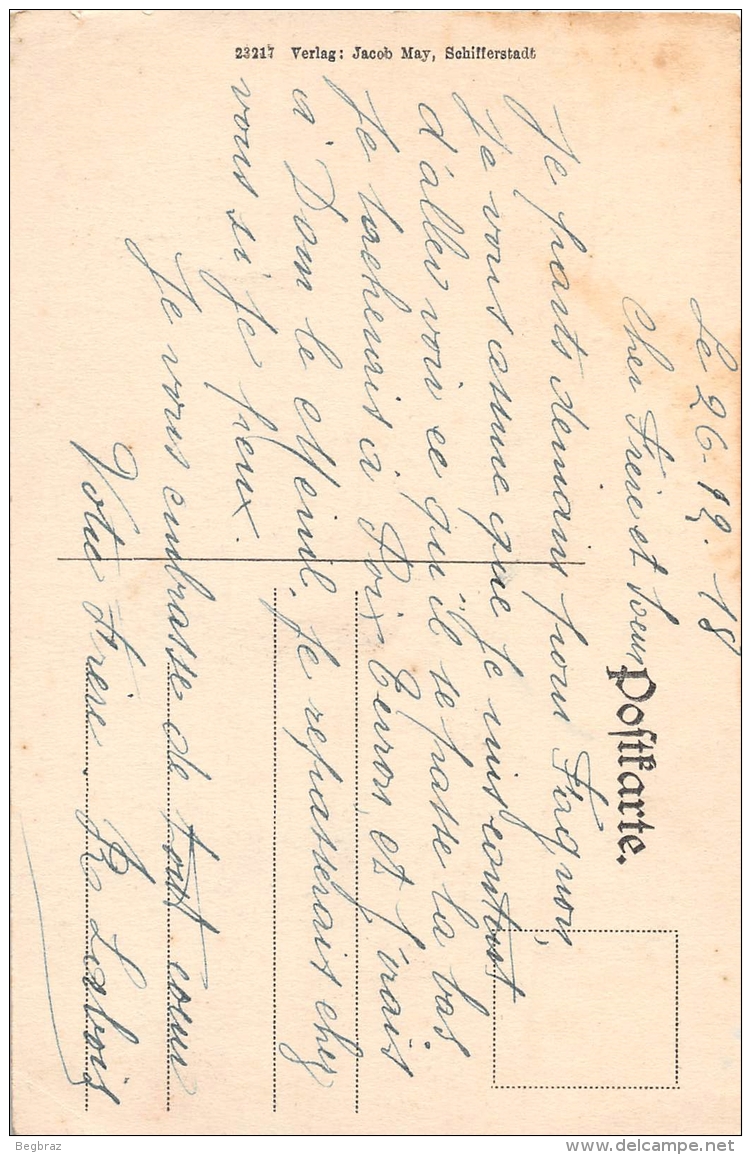 23217 Verlag: Jacob May, Schifferstadt
Postkarte.
Le 26-12-18
Cher Frère et Soeur
Je parts demain pour Fagnon,
Je vous assure que Je suis contant
d'aller voir ce qu'il se passe la bas
Je tacherais à Poix et J'irais
à Dom le Mesnil. Je repasserais chez
vous si Je peux.
Je vous embrasse de tout coeur
Votre Frère. R
Begbraz
www.delcampe.net